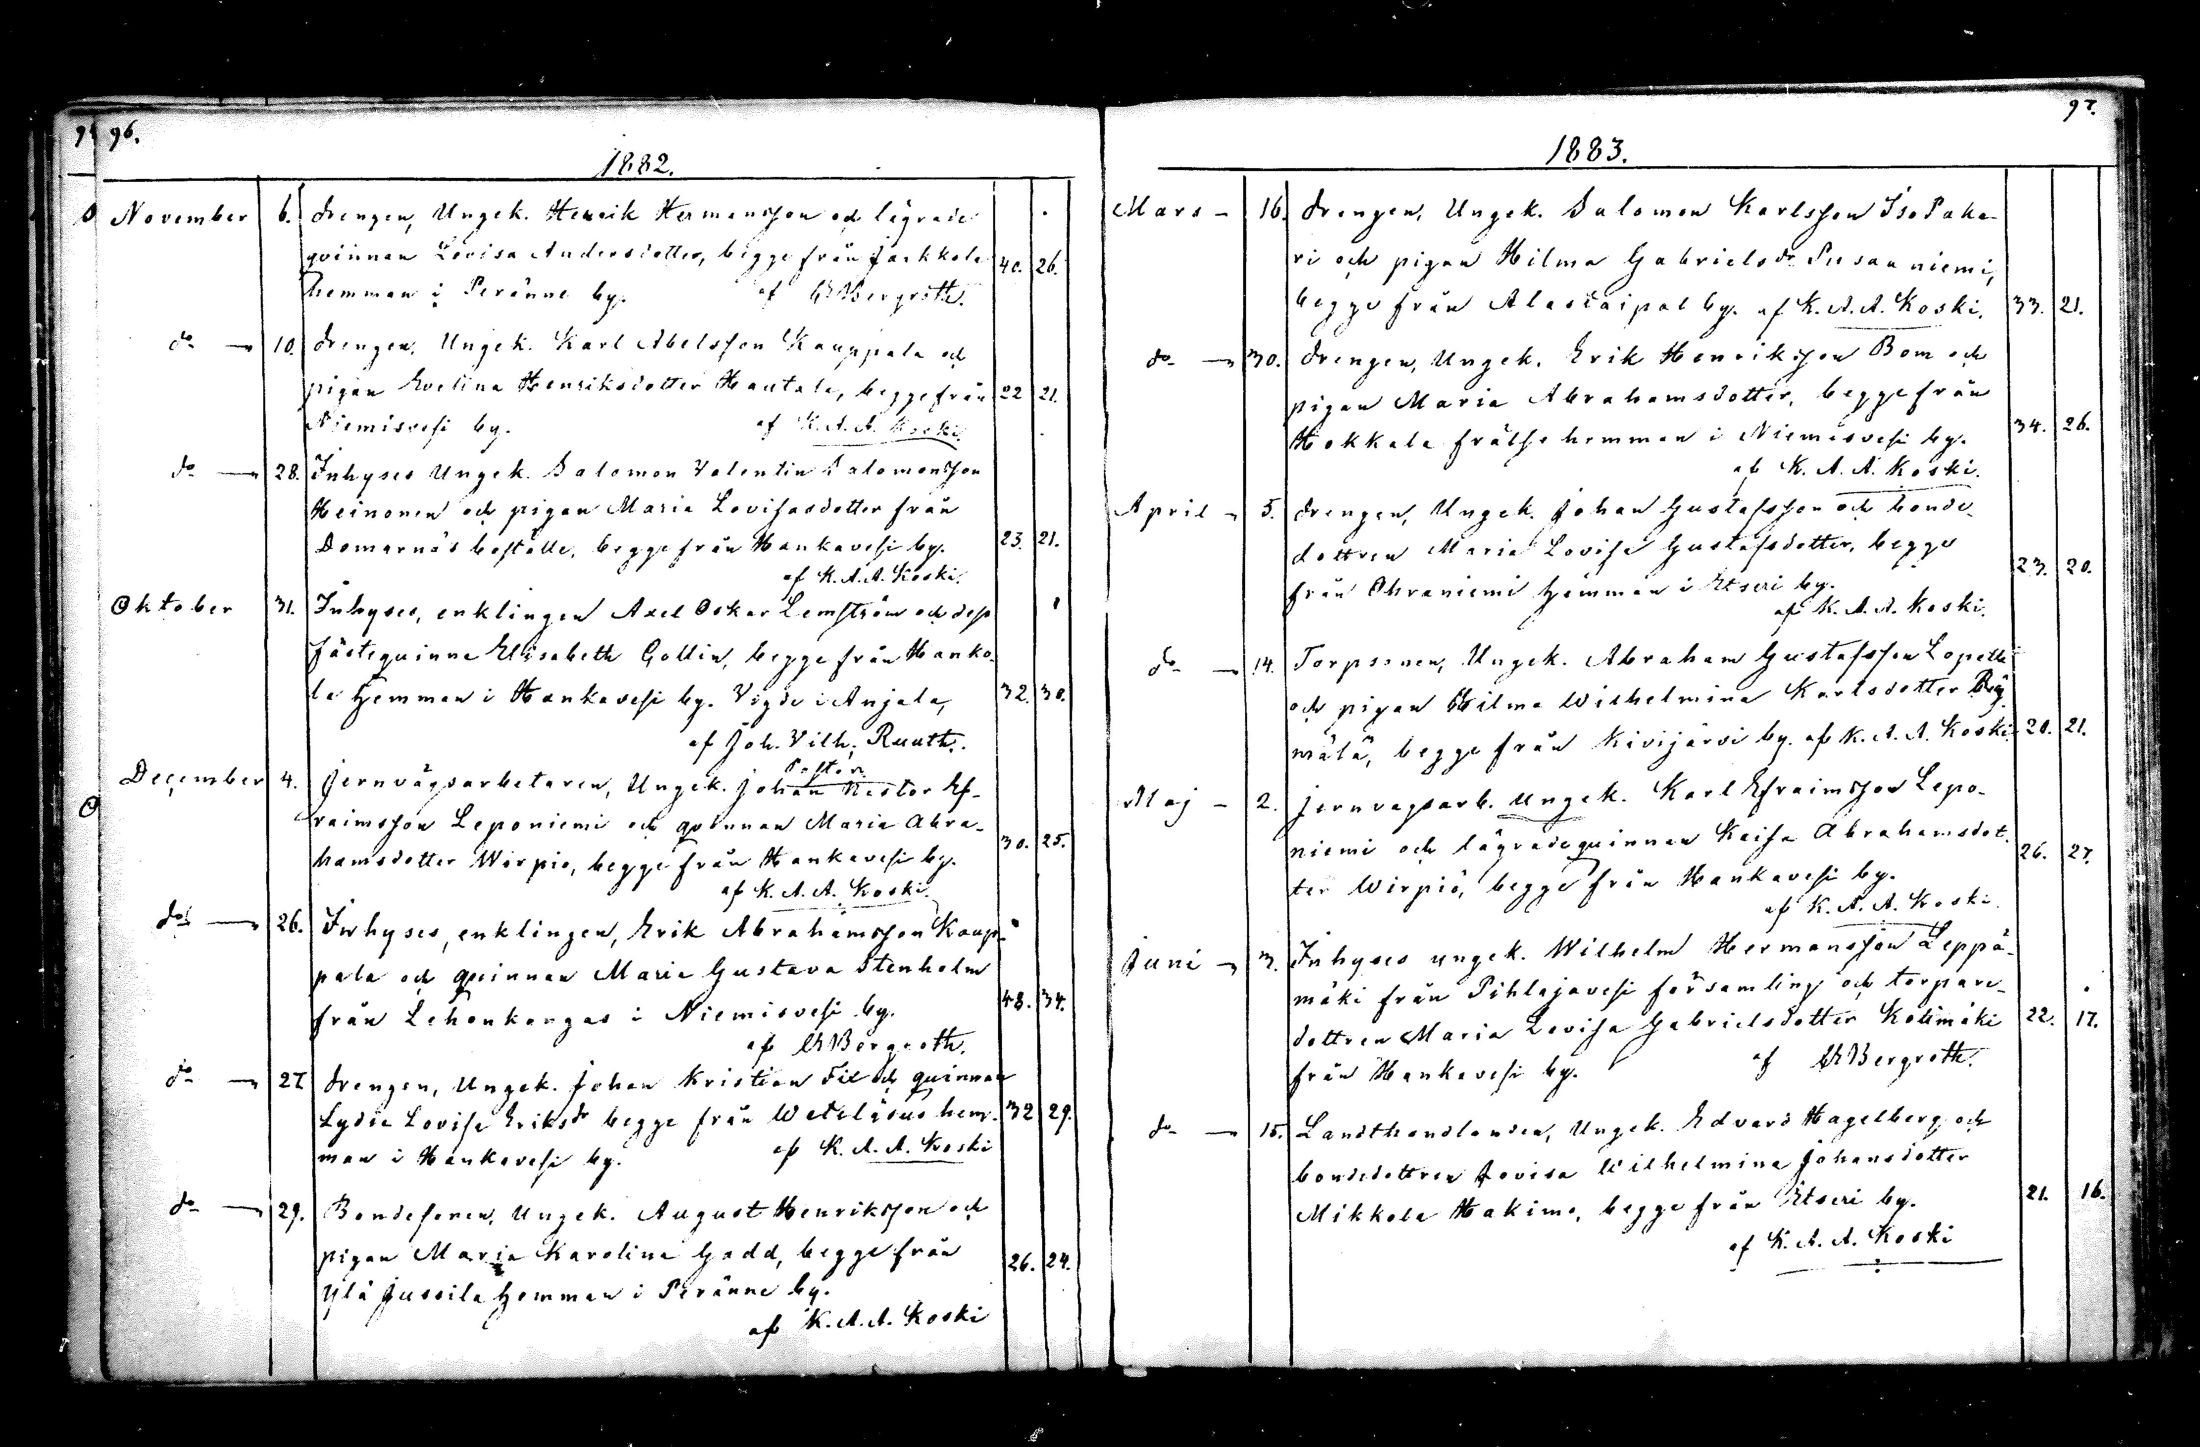 96.
1882.
November 6. drengen, Ungek. Henrik Hermansson och lägrade
qvinnan Lovisa Andersdotter, begge från Jaskkola 40. 26.
hemman i Peränne by. af GBergroth.
do 10. drengen, Ungek. Karl Abelsson Kauppala och
pigan Evelina Henriksdotter Hautala, begge från 22 21.
Niemisvesi by. af K. A. A. Koski.
do 28. Inhyses Ungek. Salomon Valentin Salomonsson
Heinonen och pigan Maria Lovisasdotter från
Domarnäs boställe, begge från Hankavesi by. 23. 21.
af K. A. A. Koski.
Oktober 31. Inhyses, enklingen Axel Oskar Lemström och dess
fästeqvinna Elisabeth Gollin, begge från Hanko-
la hemman i Hankavesi by. Vigde i Anjala, 32. 30.
af Joh. Vilh. Ruuth.
Pastor.
December 4. Jernvägsarbetaren, Ungek. Johan Nestor Ef-
raimsson Leponiemi och qvinnan Maria Abra-
hamsdotter Wirpio, begge från Hankavesi by. 30. 25.
af K. A. A. Koski.
do 26. Inhyses, enklingen, Erik Abrahamsson Kaup-
pala och qvinnan Maria Gustava Stenholm
från Lehonkangas i Niemisvesi by. 48. 34.
af GBergroth.
do 27. drengen, Ungek. Johan Kristian Fix och qvinnan
Lydia Lovisa Eriksdr begge från Wetiläsus hem- 32 29.
man i Hankavesi by. af K. A. A. Koski
do 29. Bondesonen, Ungek. August Henriksson och
pigan Maria Karolina Gadd, begge från
Ylä Jussila hemman i Peränne by. 26. 24.
af K. A. A. Koski
97.
1883.
Mars 16. drengen, Ungek. Salomon Karlsson Iso Paka-
ri och pigan Hilma Gabrielsdr Pusaa niemi,
begge från Alastaipal by. af K. A. A. Koski. 33. 21.
do 30. drengen, Ungek. Erik Henriksson Bom och
pigan Maria Abrahamsdotter, begge från
Hokkala frälse hemman i Niemisvesi by. 34. 26.
af K. A. A. Koski.
April 5. drengen, Ungek. Johan Gustafsson och bonde-
dottren Maria Lovisa Gustafsdotter, begge
från Ohraniemi hemman i Etseri by. 23. 20.
af K. A. A. Koski.
do 14. Torpsonen, Ungek. Abraham Gustafsson Lopella
och pigan Hilma Wilhelmina Karlsdotter
mälä, begge från Kivijärvi by. af K. A. A. Koski. 20. 21.
Maj 2. Jernvägsarb. Ungek. Karl Efraimsson Lepo-
niemi och lägrade qvinnan Kaisa Abrahamsdot-
ter Wirpiö, begge från Hankavesi by. 26. 27.
af K. A. A. Koski.
Juni 3. Inhyses ungek. Wilhelm Hermansson Leppä-
mäki från Pihlajavesi församling och torpare-
dottren Maria Lovisa Gabrielsdotter Kotimäki 22. 17.
från Hankavesi by. af GBergroth.
do 15. Landthandlanden, Ungek. Edvard Hagelberg och
bondedottren Lovisa Wilhelmina Johansdotter
Mikkola Hakimo, begge från Etseri by. 21. 16.
af K. A. A. Koski